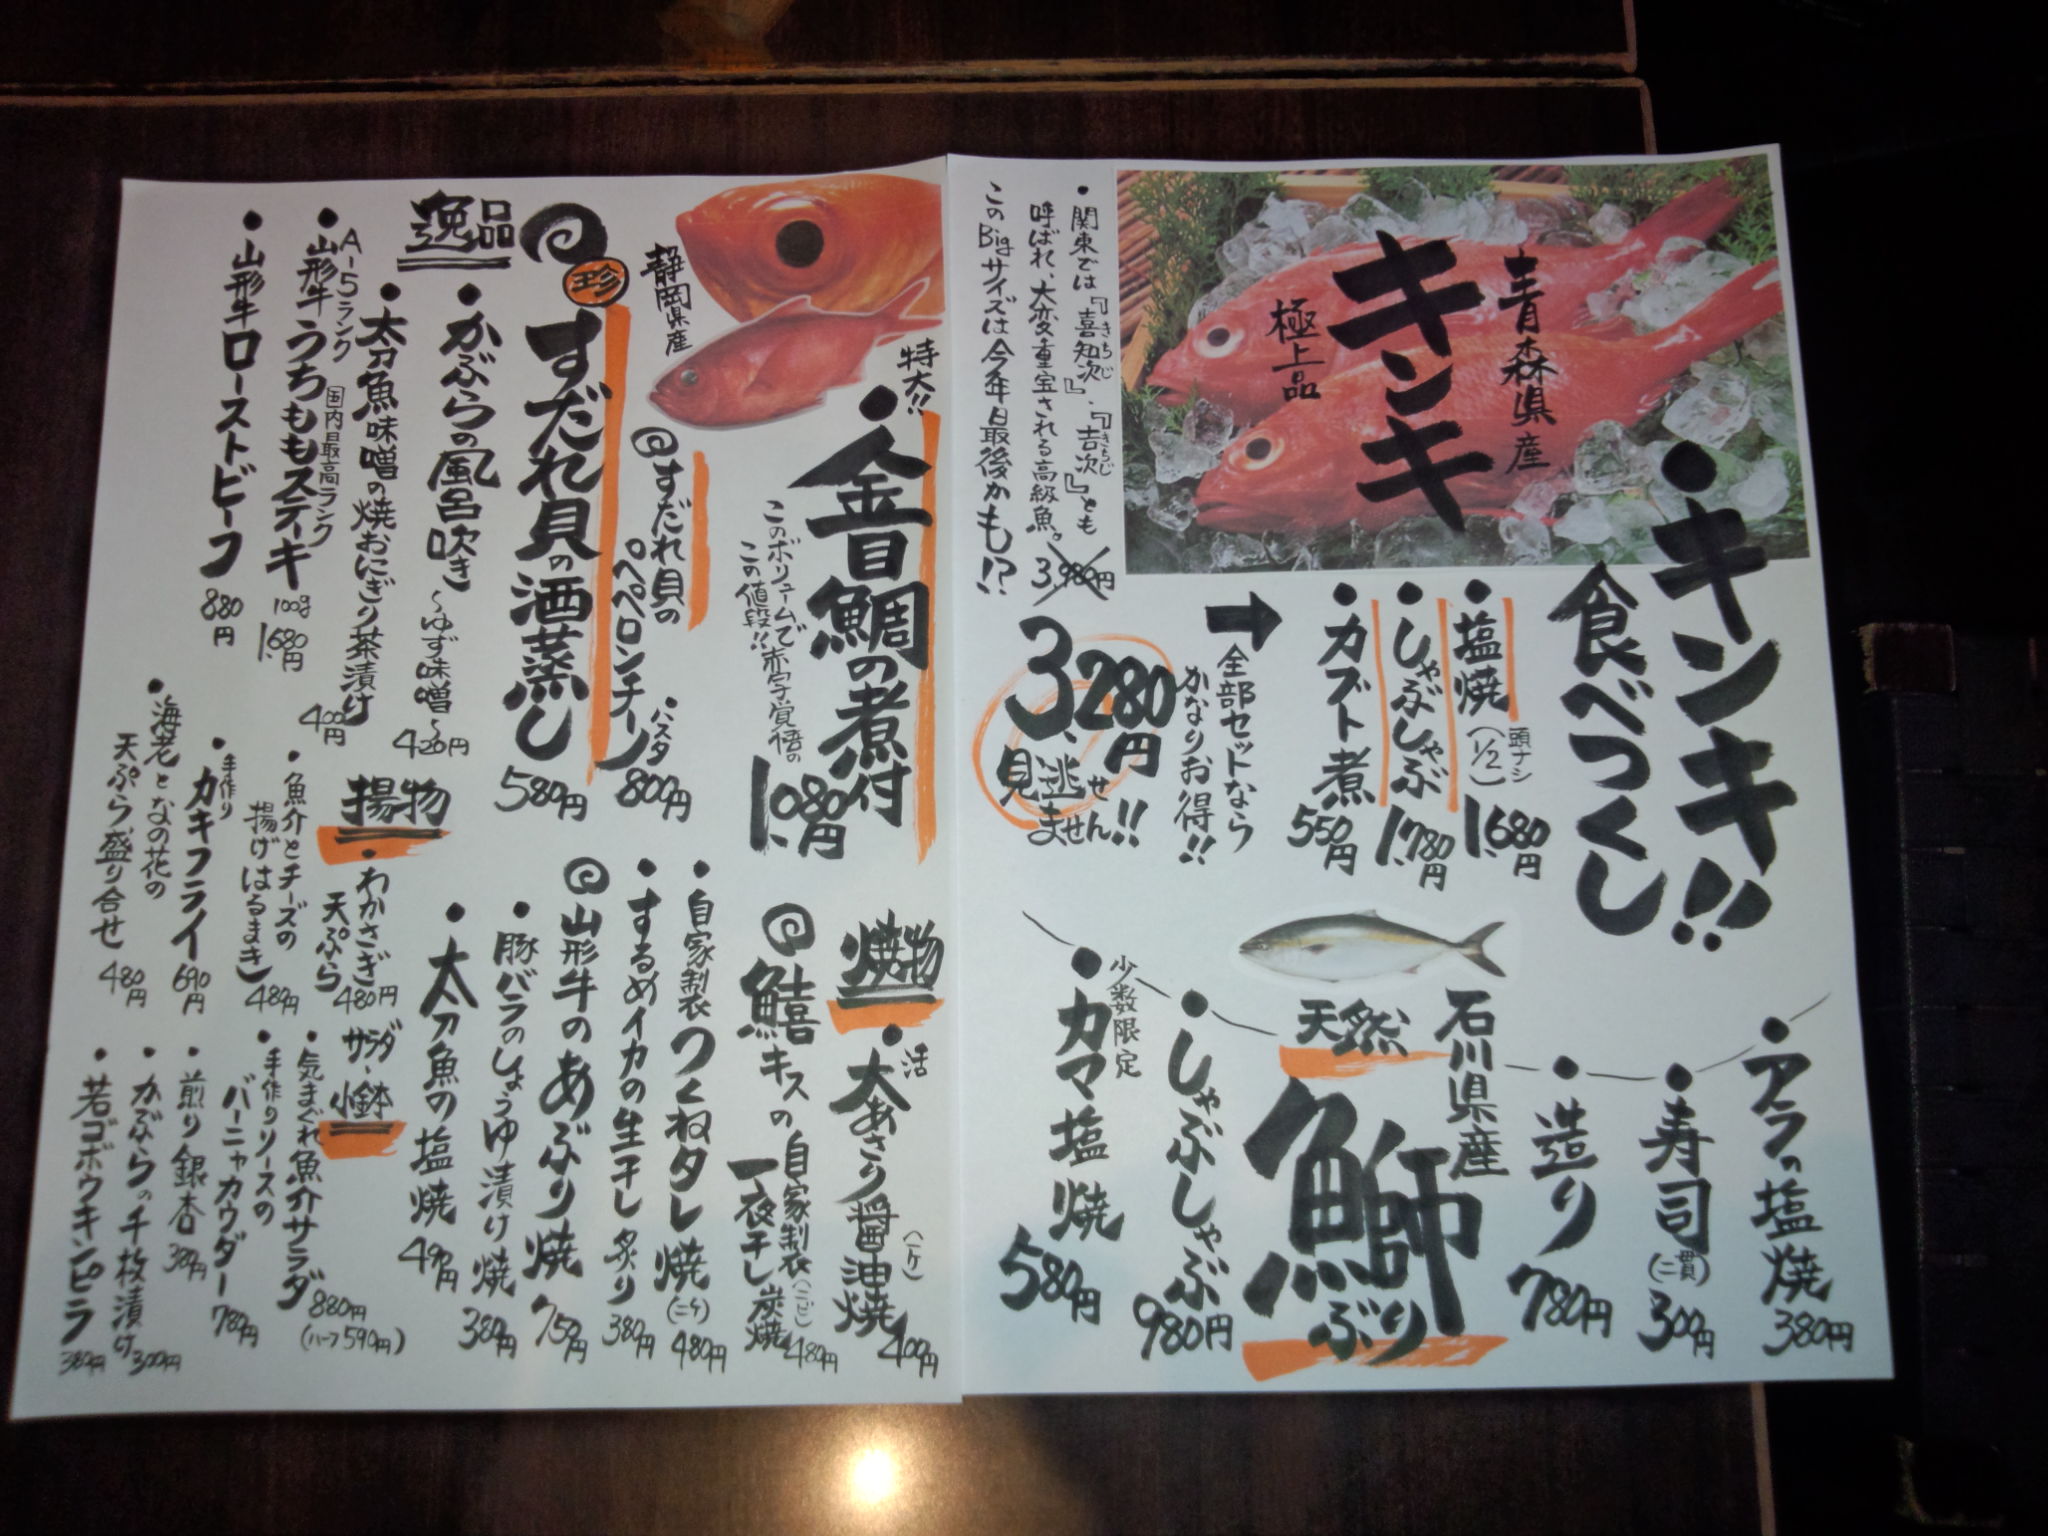 青森県産
キンキ
極上品
・関東では『喜知次』、『吉次』とも
きちじ
きちじ
呼ばれ、大変重宝される高級魚。
このBigサイズは今年最後かも!?
・キンキ!!
食べつくし
・塩焼(1/2)
頭ナシ
1,680円
・しゃぶしゃぶ
1,780円
・カブト煮
550円
➡全部セットなら
かなりお得!!
3,980円
3,280円
見逃せません!!
ません
石川県産
天然
鰤
ぶり
・アラの塩焼
380円
・寿司(二貫)
300円
・造り
780円
・しゃぶしゃぶ
980円
少数限定
・カマ塩焼
580円
静岡県産
特大!!
・金目鯛の煮付
1,080円
このボリュームで赤字覚悟の
この値段!!
すだれ貝の
ペペロンチーノ
パスタ
800円
珍
すだれ貝の酒蒸し
580円
逸品
・かぶらの風呂吹き
〜ゆず味噌〜
420円
・太刀魚味噌の焼おにぎり茶漬け
400円
A-5ランク
・山形牛うちももステーキ
国内最高ランク
100g
1,680円
・山形牛ローストビーフ
880円
焼物
活
・大あさり醤油焼
(一ケ)
400円
鱚キスの自家製
一夜干し炭焼
(二ビ)
480円
・自家製つくねタレ焼
(二ケ)
480円
・するめイカの生干し炙り
380円
山形牛のあぶり焼
750円
・豚バラのしょうゆ漬け焼
380円
・太刀魚の塩焼
490円
揚物
・わかさぎ
天ぷら
480円
・魚介とチーズの
揚げはるまき
480円
手作り
・カキフライ
690円
・海老となの花の
天ぷら盛り合せ
480円
サラダ・
小鉢
・気まぐれ魚介サラダ
880円
(ハーフ590円)
・手作りソースの
バーニャカウダー
780円
・煎り銀杏
380円
・かぶらの千枚漬け
300円
・若ゴボウキンピラ
380円